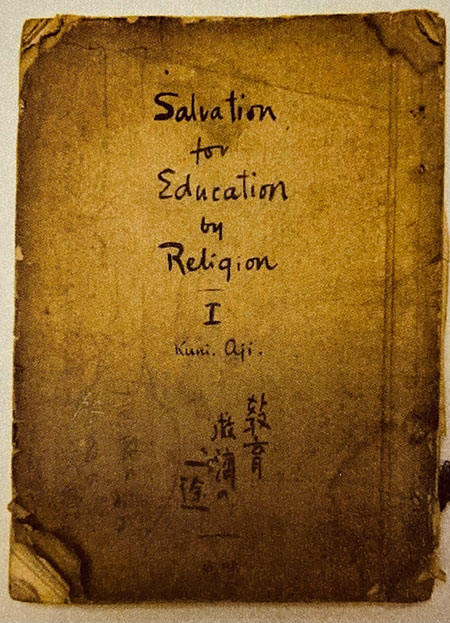 Salvation
for
Education
by
Religion
I
Kuni. Aji.
教育
救済の
一途